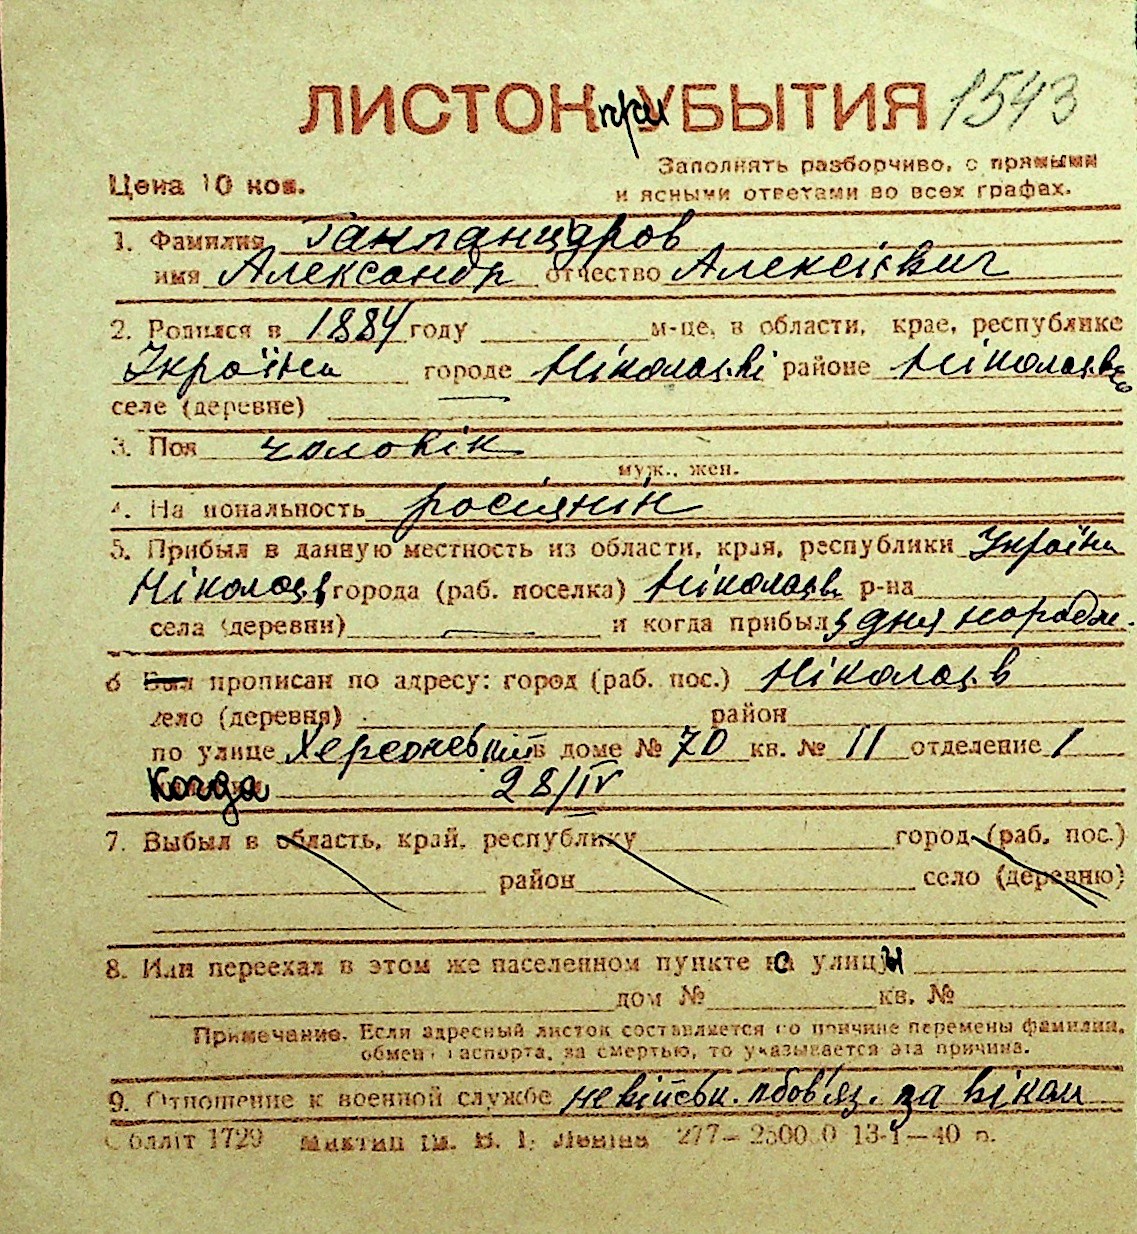 ЛИСТОК при УБЫТИЯ 1543
Цена 10 коп.
Заполнять разборчиво, с прямыми
и ясными ответами во всех графах.
1. Фамилия
имя Александр отчество Алексієвич
2. Родился в 1884 году м-це, в области, крае, республике
Україна городе Ніколаєві районе
селе (деревне) —
3. Пол чоловік
муж., жен.
4. Национальность росіянін
5. Прибыл в данную местность из области, края, республики Україна
Ніколаєв города (раб. поселка) Ніколаєв р-на
села (деревни) — и когда прибыл з дня народж.
6 Был прописан по адресу: город (раб. пос.) Ніколаєв
село (деревня) район
по улице в доме № 70 кв. № 11 отделение 1
Когда 28/IV
7. Выбыл в область, край, республику город (раб. пос.)
район село (деревню)
8. Или переехал в этом же населенном пункте на улицу
дом № кв. №
Примечание. Если адресный листок составляется по причине перемены фамилии,
обмен паспорта, за смертью, то указывается эта причина.
9. Отношение к военной службе невійськ. обов'яз. за віком
Обллiт 1720 Миктип им. В. І. Леніна 277— 13-1—40 р.